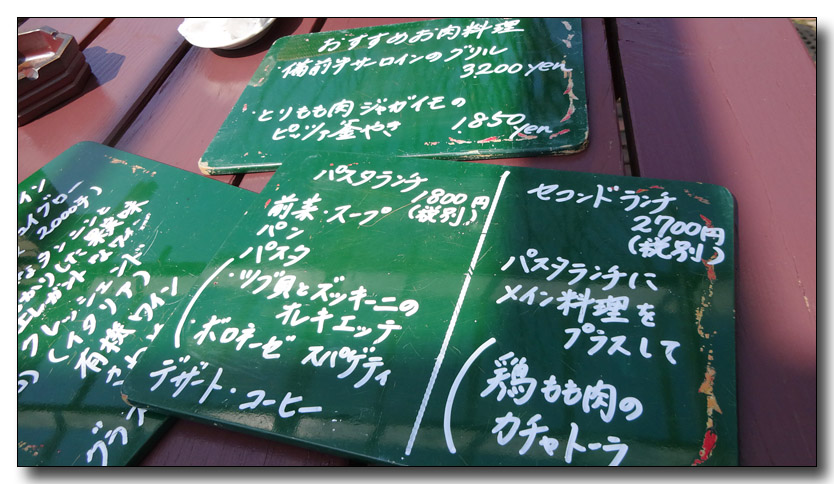 おすすめお肉料理
備前牛サーロインのグリル
3200 yen
・とりもも肉 ジャガイモの
ピッツァ釜やき 1.850 yen
パスタランチ
1800円
(税別)
前菜・スープ
パン
パスタ
・ツブ貝とズッキーニの
オレキエッテ
・ボロネーゼ スパゲティ
デザート・コーヒー
セコンドランチ
2700円
(税別)
パスタランチに
メイン料理を
プラスして
鶏もも肉の
カチャトーラ
イン
2000
果実味
エレガント
フレッシュ
(イタリア)
有機ワイン
グラン